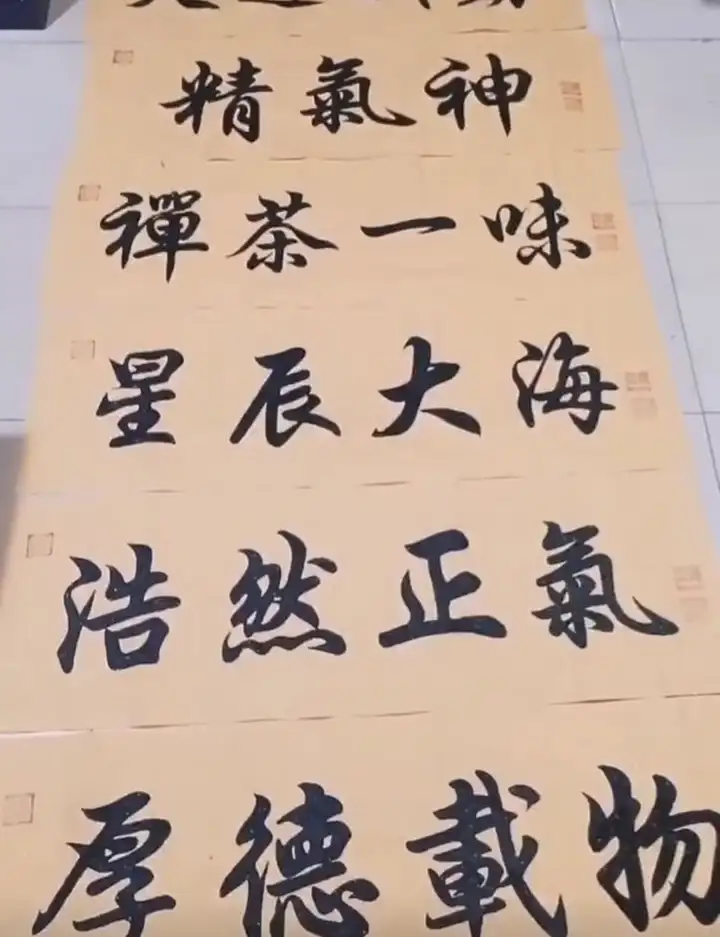 精氣神
禪茶一味
星辰大海
浩然正氣
厚德載物